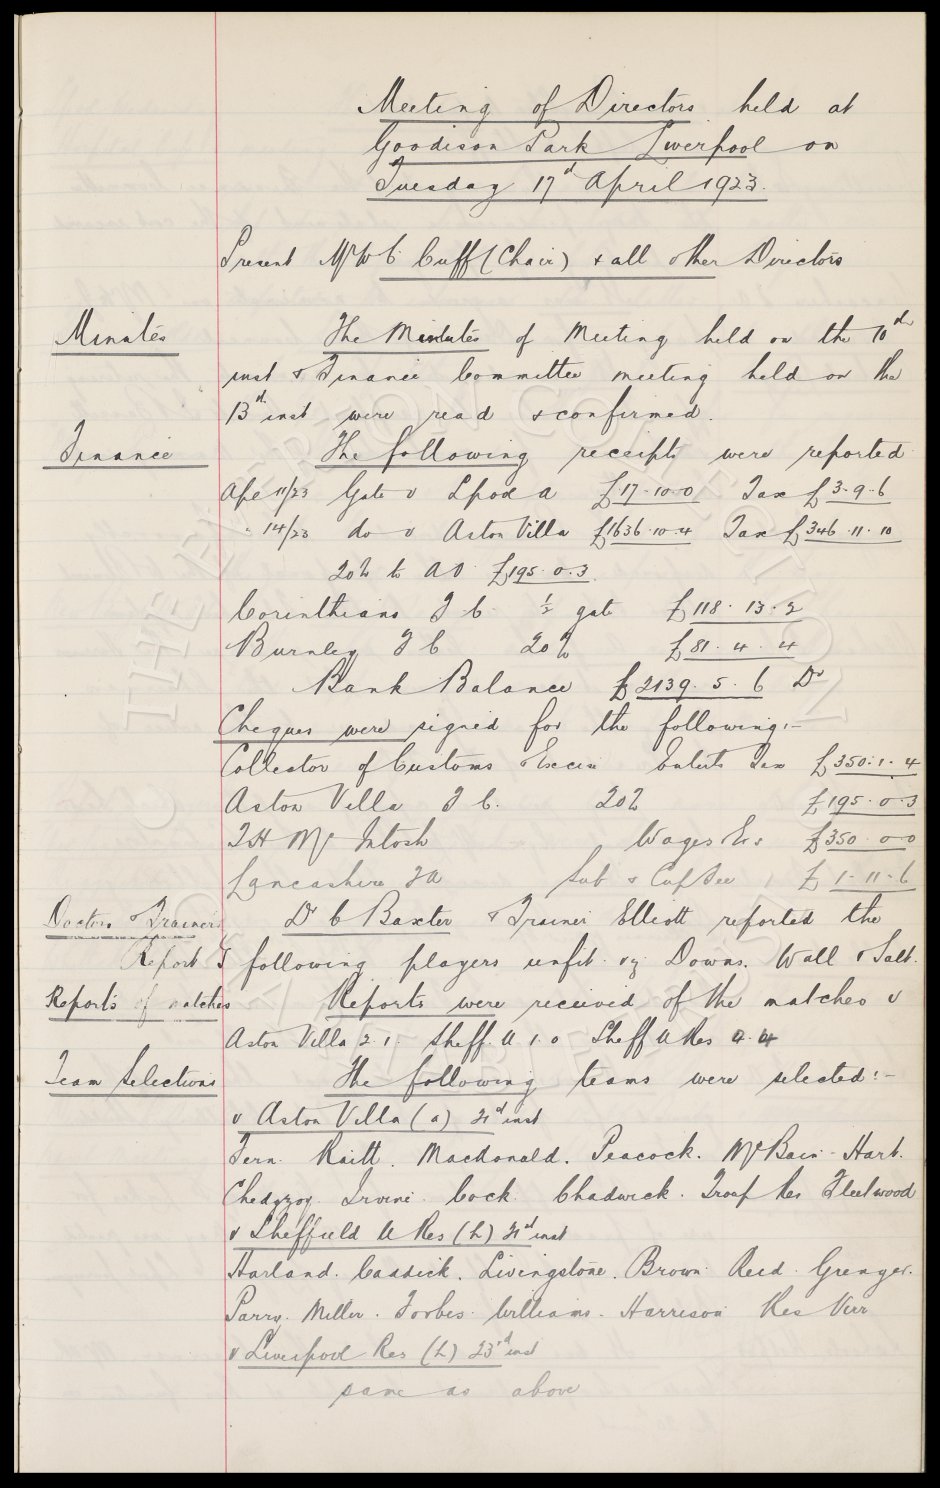 Meeting of Directors held at
Goodison Park Liverpool on
Tuesday 17th April 1923.
Present Mr W C Cuff (Chair) & all other Directors
Minutes
The Minutes of Meeting held on the 10th
inst & Finance Committee meeting held on the
13th inst were read & confirmed.
Finance
The following receipts were reported
Apl 11/23 Gate v L'pool a £17-10-0 Tax £3-9-6
" 14/23 do v Aston Villa £1636-10-4 Tax £346-11-10
20% to A V £195-0-3
Corinthians F C ½ gate £118-13-2
Burnley F C 20% £81-4-4
Bank Balance £2139-5-6 Dr
Cheques were signed for the following:-
Collector of Customs & Excise Entert Tax £350-1-4
Aston Villa F C. 20% £195-0-3
T H McIntosh Wages &c £350-0-0
Lancashire FA Sub & Cup Fee £1-11-6
Doctor & Trainers
Report
Dr C Baxter & Trainer Elliott reported the
following players unfit. viz Downs. Wall & Salt.
Reports of matches
Reports were received of the matches v
Aston Villa 2.1. Sheff. U 1.0 Sheff U Res 2.4
Team Selections
The following teams were selected:-
v Aston Villa (a) 21st inst
Fern. Raitt. Macdonald. Peacock. McBain. Hart.
Chedgzoy. Irvine. Cock. Chadwick. Troup Res Fleetwood
v Sheffield U Res (h) 21st inst
Harland. Caddick. Livingstone. Brown. Reid. Grenyer.
Parry. Miller. Forbes. Williams. Harrison Res Virr
v Liverpool Res (h) 23rd inst
same as above